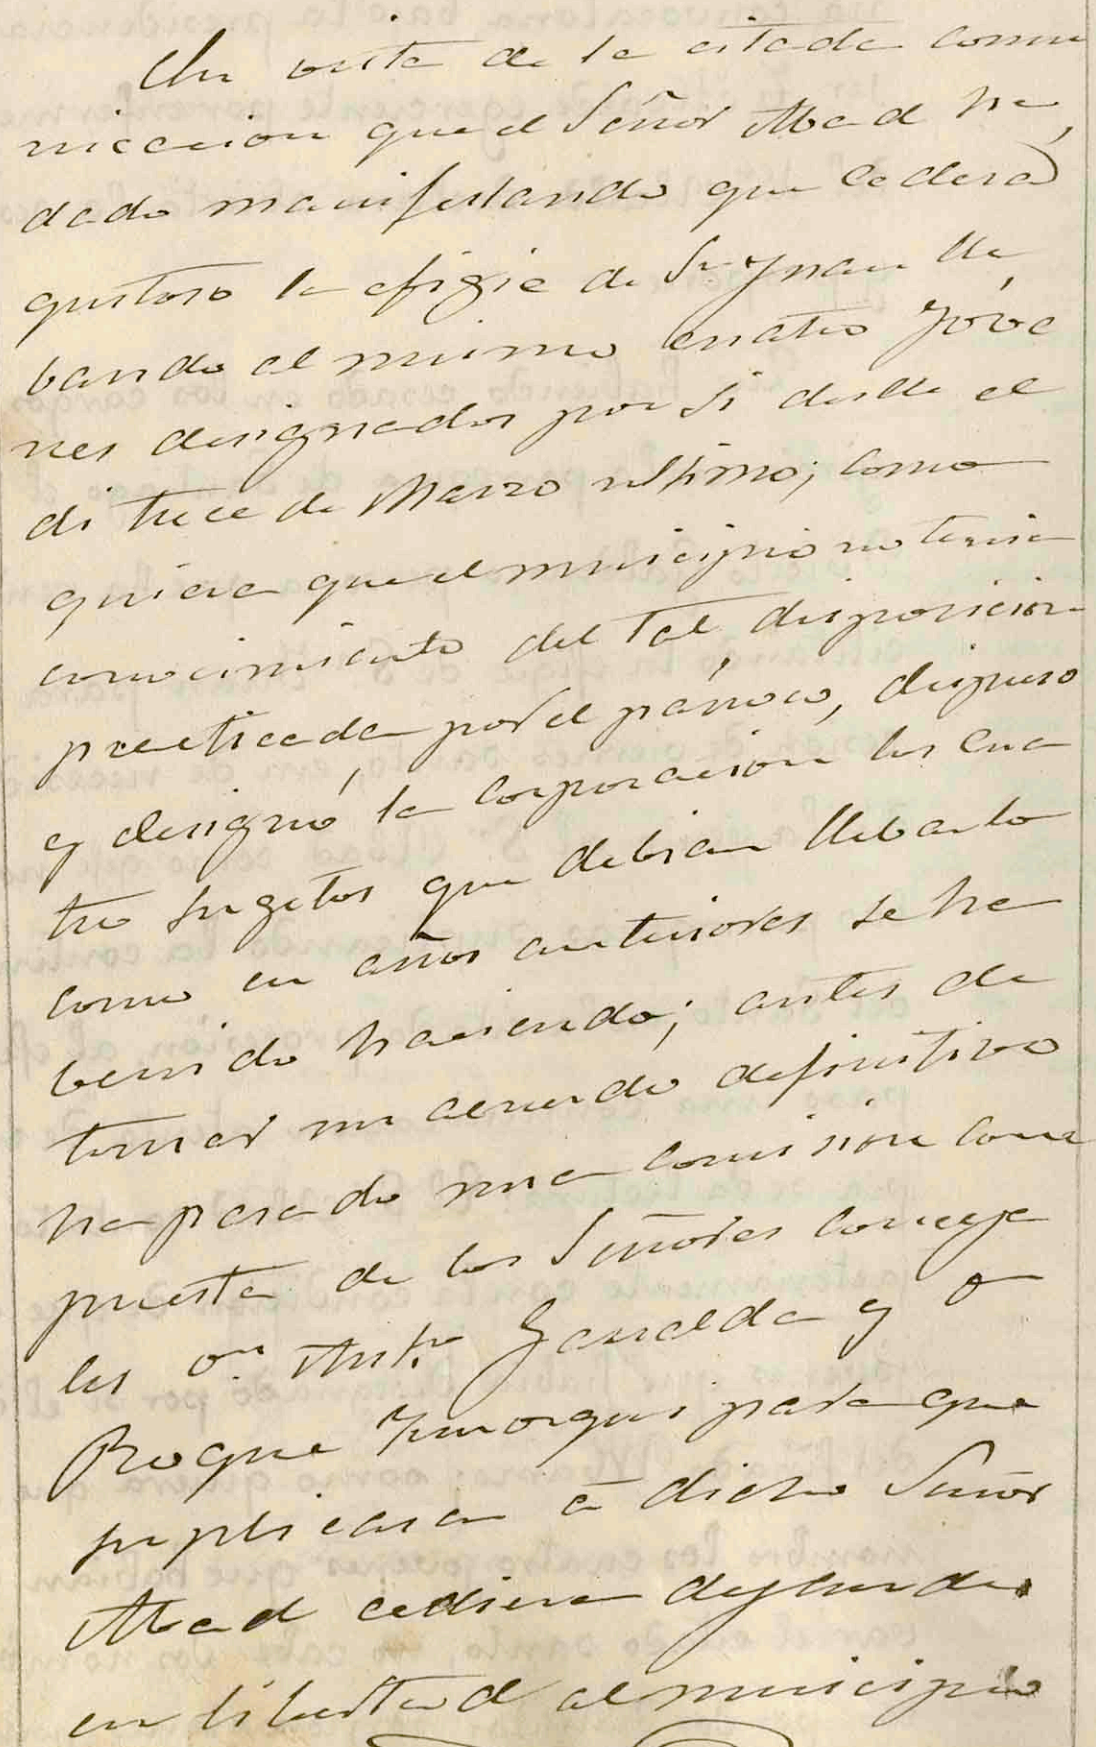 En vista de la citada comu
nicacion que el Señor Abad ha
dado manifestando que cederá
gustoso la efigie de Sn Juan lle
bando al mismo cuatro jóve
nes designados por si desde el
di trece de Marzo ultimo; como
quiera que el municipio no tenia
conocimiento del tal disposicion
practicada por el párroco, dispuso
y designó la corporacion los cua
tro sugetos que debian llebarlo
como en años anteriores se ha
benido haciendo; antes de
tomar un acuerdo definitivo
ha pasado una comision com
puesta de los Señores conceja
les Dn. Antº Ganalda y D
Roque para que
suplicaran á dicho Señor
Abad cediera dejando
en libertad al municipio